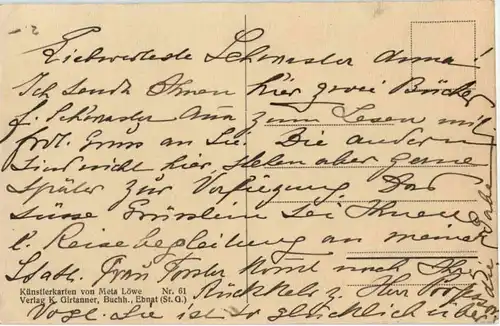 Liebwerte Schwester Anna!
Ich sende Ihnen hier zwei Bücher
f. Schwester zum Lesen mit
frdl. Gruss an Sie. Die andern
sind nicht hier, stehen aber gerne
später zur Verfügung. Das
süsse Grüsslein sei Ihnen
l. Reisebegleitung an meiner
Statt. Frau Forster kommt nach Ihr
Rückkehr z. Herr Professor
Vogt. Sie ist so glücklich über
Künstlerkarten von Meta Löwe Nr. 61
Verlag K. Girtanner, Buchh., Ebnat (St. G.)